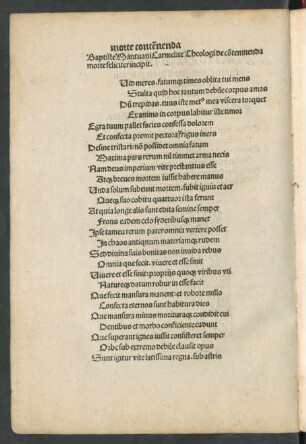 morte contēnenda
Baptiste Mantuani Carmelite Theologi de cōtemnenda
morte feliciter incipit.
Uid meres. fatumq; times oblita tui mens
Stulta quid hoc tantum debile corpus amas
Dū trepidas. tuus iste met⁹ mea viscera torquet
Exanimo in corpus labitur iste timor
Egra tuum pallet facies confessa dolorem
Et confecta premit pectora frigus iners
Desine tristari nō possidet omnia fatum
Maxima pars rerum nū timmet arma necis
Nam deus imperium vite prestantius esse
Atq; breues mortem iussit habere manus
Uida solum subeunt mortem. subit ignis et aer
Queq; suo cobitu quattuor ista ferunt
At quia longe alis sunt edita semine semper
Frons eadem celo
Ipse tamen rerum pater omnia vertere posset
In chaos antiquum materiamq; rudem
Sed diuina suis bonitas non inuida rebus
Omnia que fecit. viuere et esse sinit
Uiuere et esse sinit: proprijs quoq; viribus vti
Natureq; datum robur in esse facit
Que fecit mansura manent: et robote mīllo
Confecta eternos sunt habitura dies
Que mansura minus monituraq; condidit cui
Dentibus et morbo conficiente cadunt
Que superant ignes iussit consistere semper
Orbe sub extremo debile clausit opus
Sunt igitur vite latissima regna. sub astris